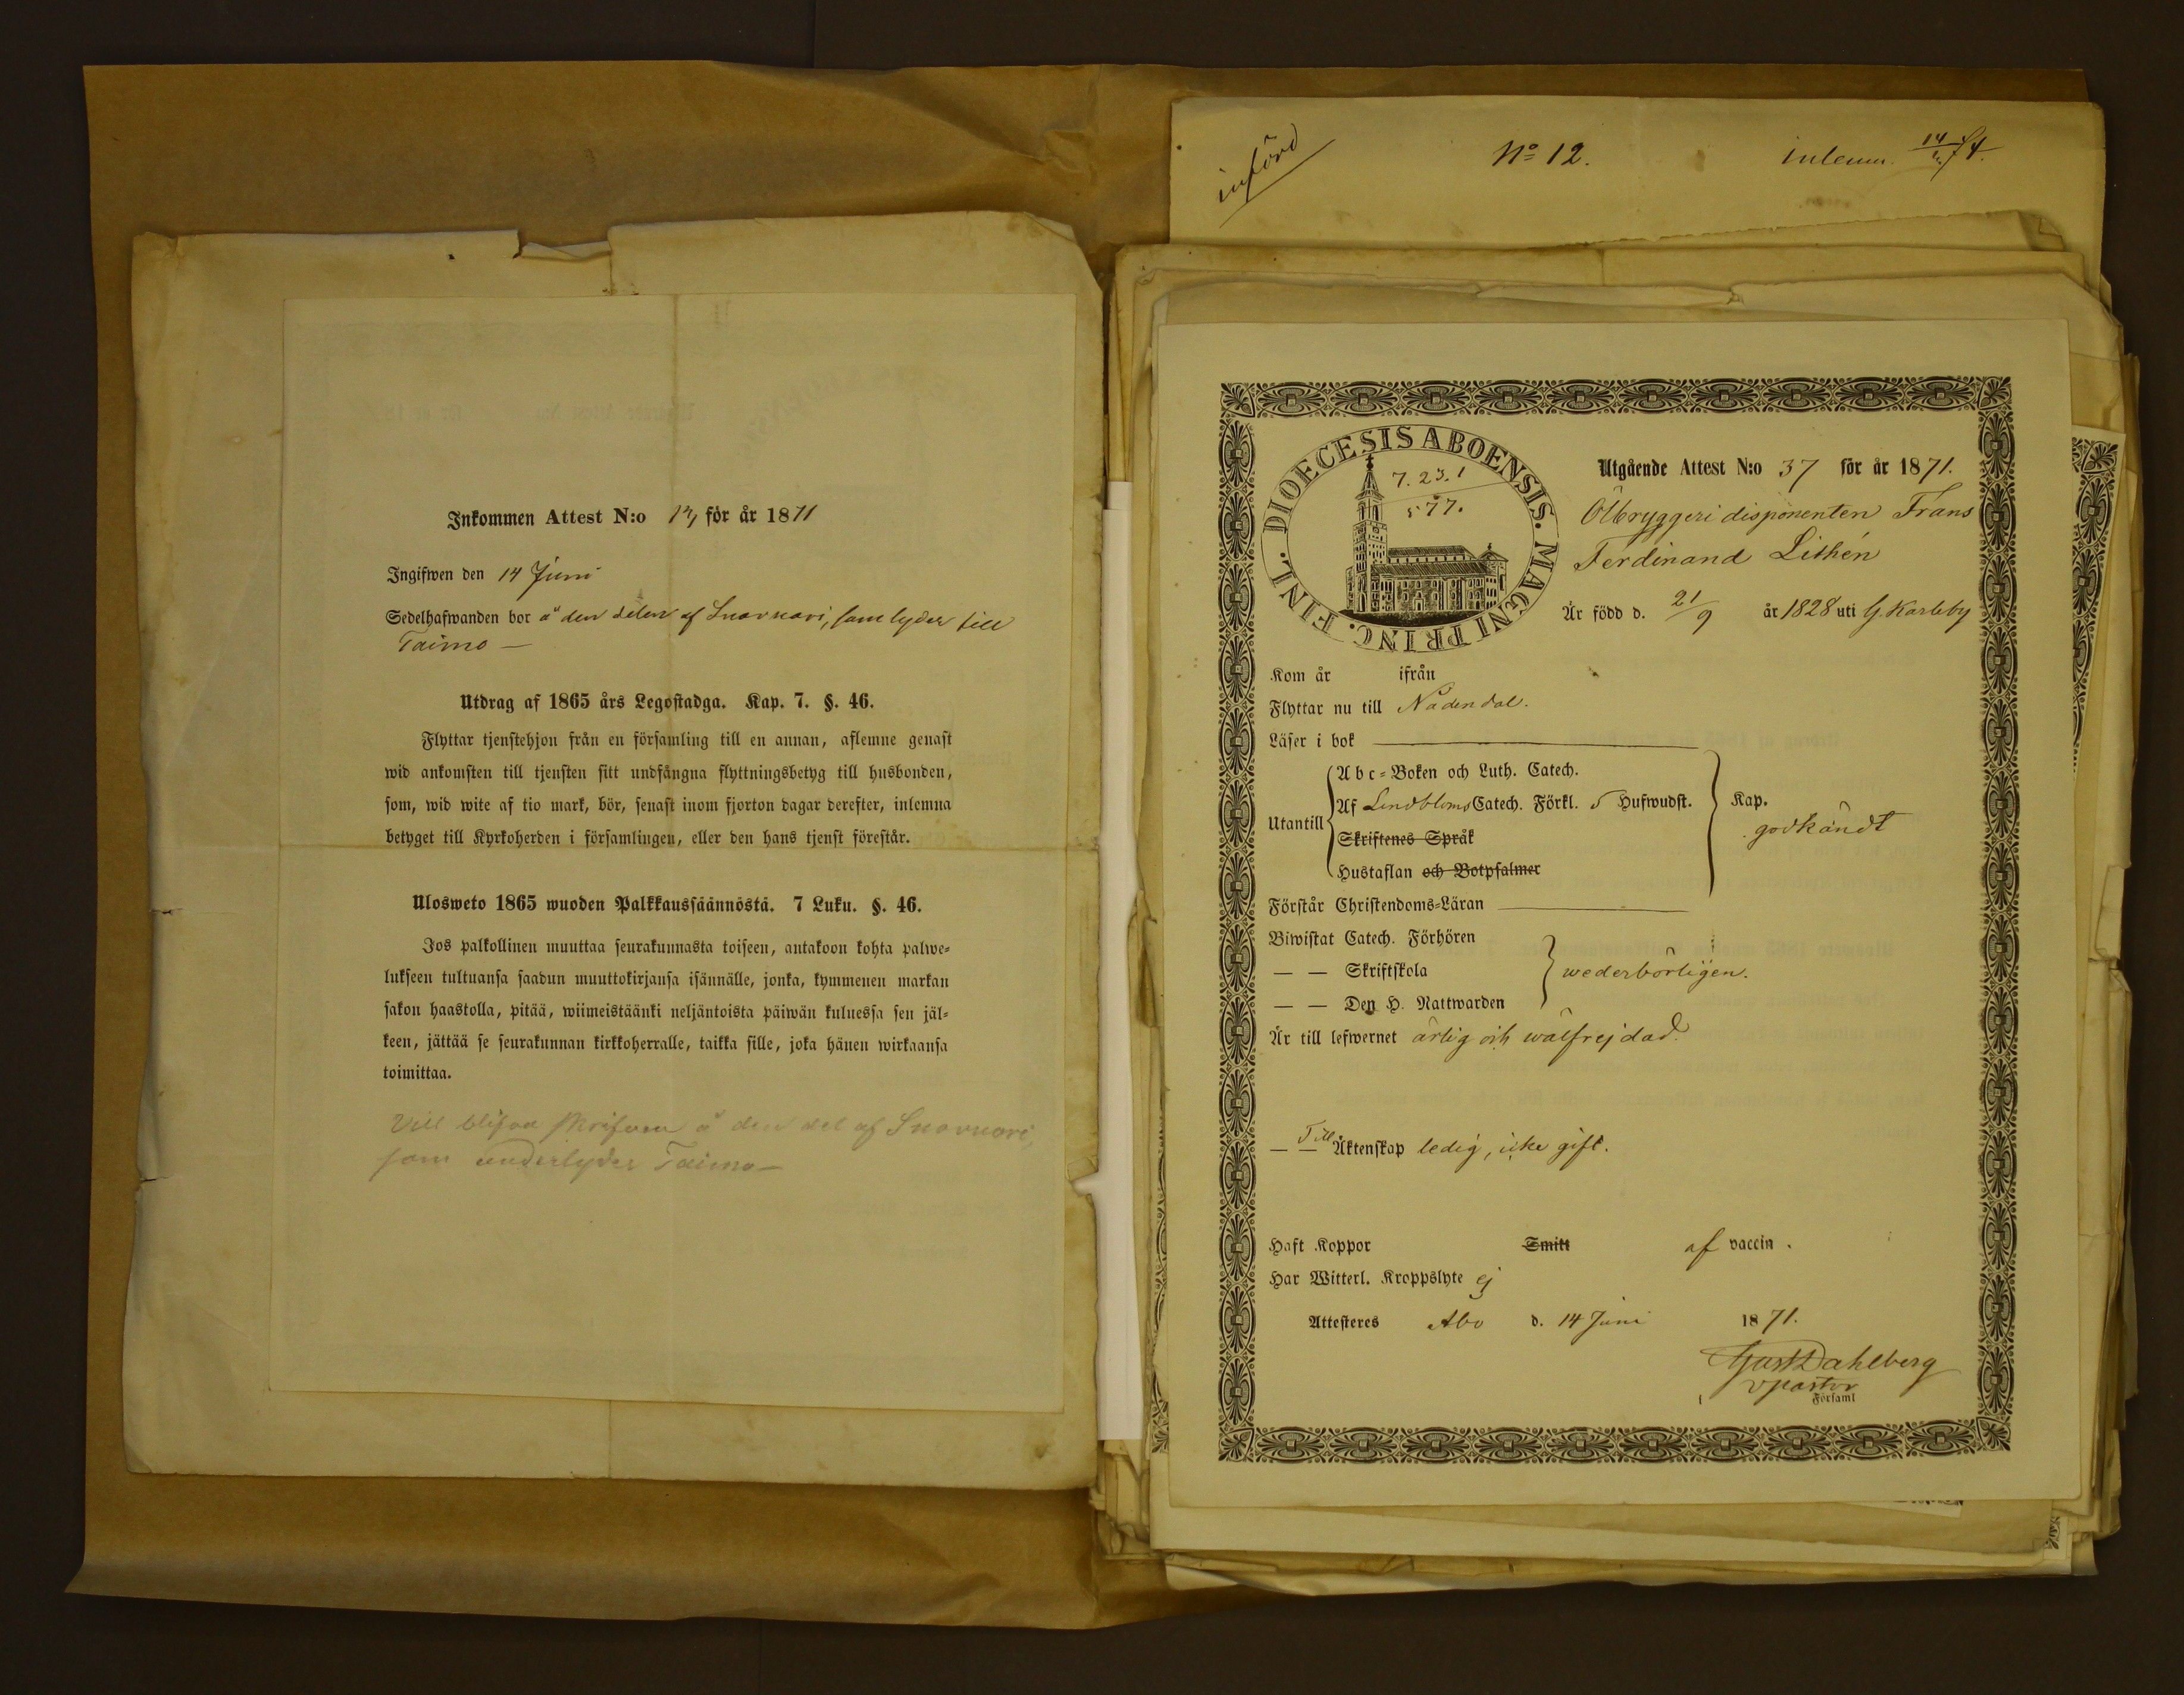 Inkommen Attest N:o 13 för år 1871
Ingifwen den 14 Juni
Sedelhafwanden bor å den delen af Snovuori, som lyder till
Taimo —
Utdrag af 1865 års Legostadga. Kap. 7. §. 46.
Flyttar tjenstehjon från en församling till en annan, aflemne genast
wid ankomsten till tjensten sitt undfångna flyttningsbetyg till husbonden,
som, wid wite af tio mark, bör, senast inom fjorton dagar derefter, inlemna
betyget till Kyrkoherden i församlingen, eller den hans tjenst förestår.
Ulosweto 1865 wuoden Palkkaussäännöstä. 7 Luku. §. 46.
Jos palkollinen muuttaa seurakunnasta toiseen, antakoon kohta palwe-
lukseen tultuansa saadun muuttokirjansa isännälle, jonka, kymmenen markan
sakon haastolla, pitää, wiimeistäänki neljäntoista päiwän kuluessa sen jäl-
keen, jättää se seurakunnan kirkkoherralle, taikka sille, joka hänen wirkaansa
toimittaa.
Vill blifva skrifven å den del af Snovuori,
som underlyder Taimo —
införd
No 12.
inlemn. 14/ 74.
DIOECESIS ABOENSIS. MAGNI PRINC. FINL.
7. 23. 1
577.
Utgående Attest N:o 37 för år 1871.
Ölbryggeri disponenten Frans
Ferdinand Lithén
Är född d. 21/9 år 1828 uti G. Karleby
Kom år ifrån
Flyttar nu till Nådendal.
Läser i bok
Utantill
Abc-Boken och Luth. Catech.
Af Lindbloms Catech. Förkl. 5 Hufwudst.
Skriftenes Språk
Hustaflan och Botpsalmer
Kap.
godkändt
Förstår Christendoms-Läran
Biwistat Catech. Förhören
— — Skriftskola
wederbörligen.
— — Den H. Nattwarden
Är till lefwernet ärlig och wälfrejdad.
— — Till Äktenskap ledig, icke gift.
Haft Koppor Smitt af vaccin.
Har Witterl. Kroppslyte ej
Attesteres Åbo d. 14 Juni 1871.
Gust Dahlberg
v pastor
Församl